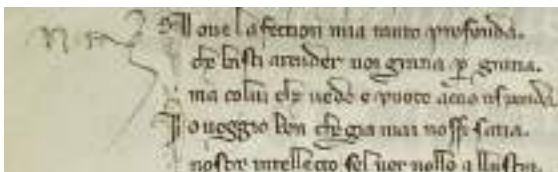 No ue lafection mia tanto profonda.
che basti arender uoi gratia p̱ gratia.
ma colui che uede e puote accio risponda
Io ueggio ben che gia mai nossi satia.
nostro intellecto sel uer nollo illustra.